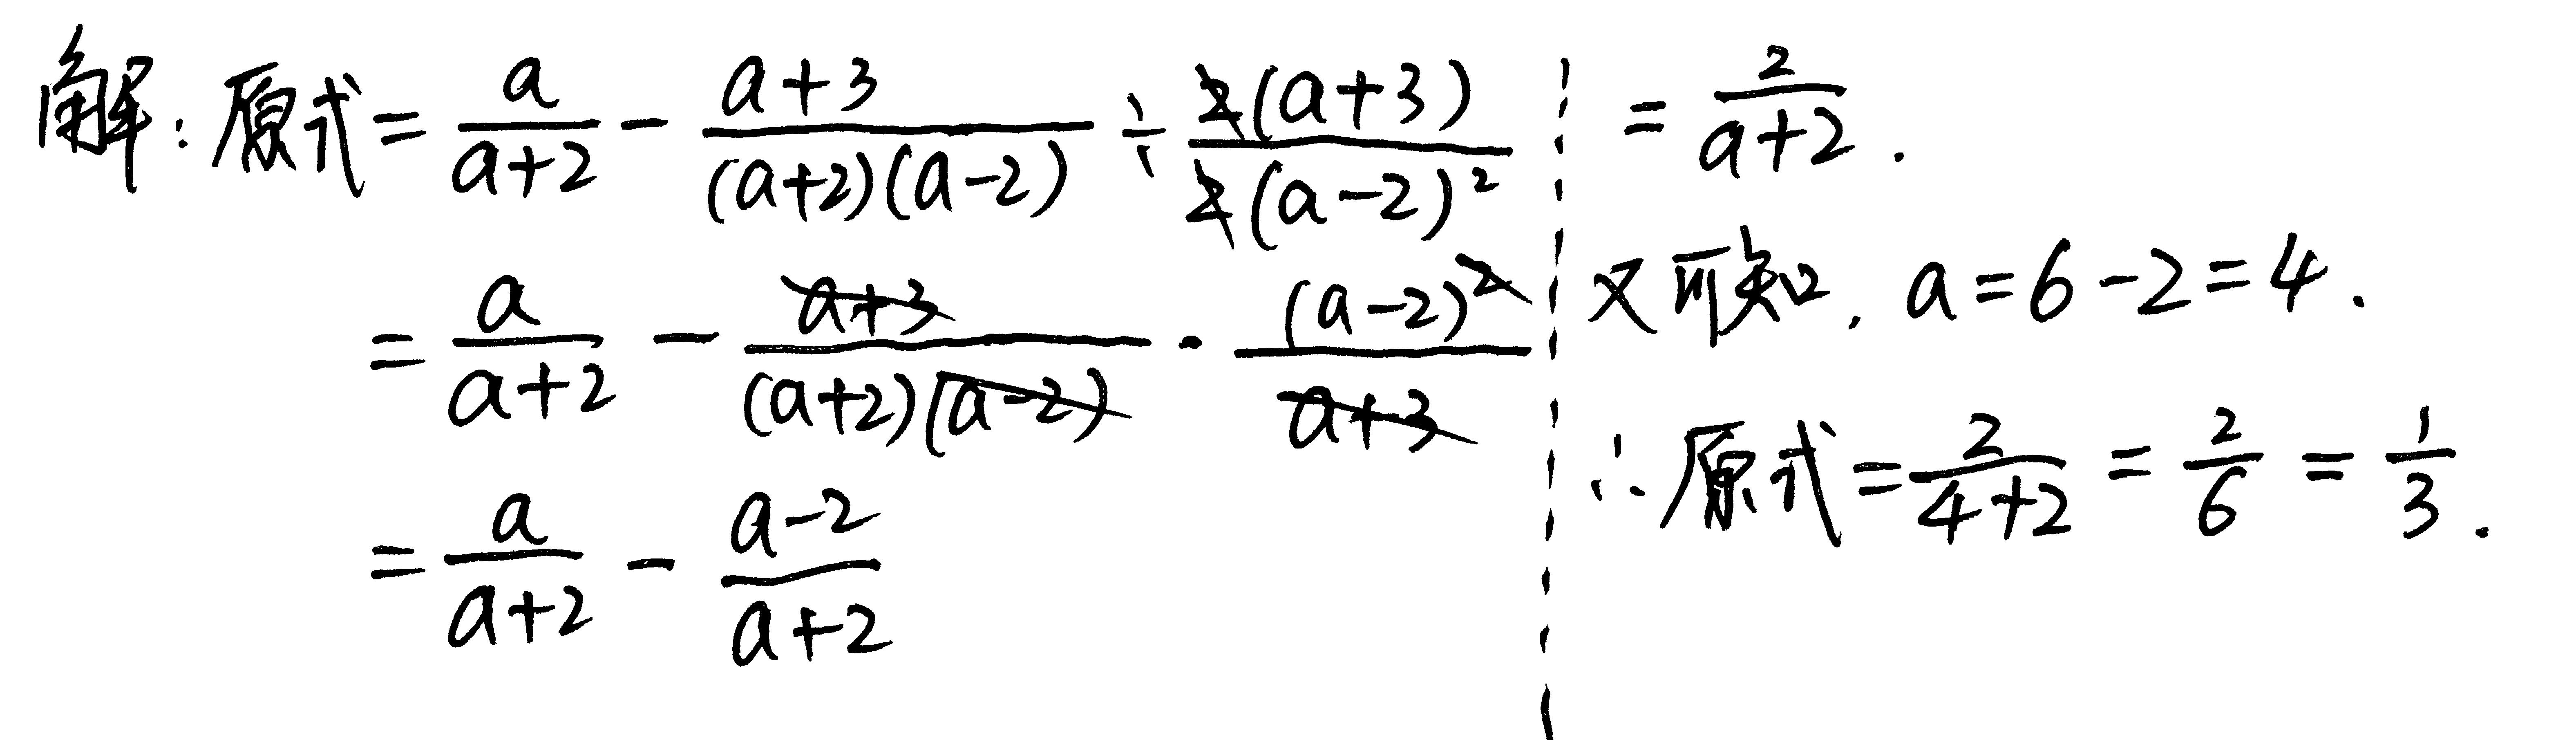 解：原式 = \frac{a}{a+2} - \frac{a+3}{(a+2)(a-2)} ÷ \frac{2(a+3)}{2(a-2)^2}
= \frac{a}{a+2} - \frac{a+3}{(a+2)(a-2)} · \frac{(a-2)^2}{a+3}
= \frac{a}{a+2} - \frac{a-2}{a+2}
= \frac{2}{a+2}.
又可知, a=6-2=4.
∴原式 = \frac{2}{4+2} = \frac{2}{6} = \frac{1}{3}.